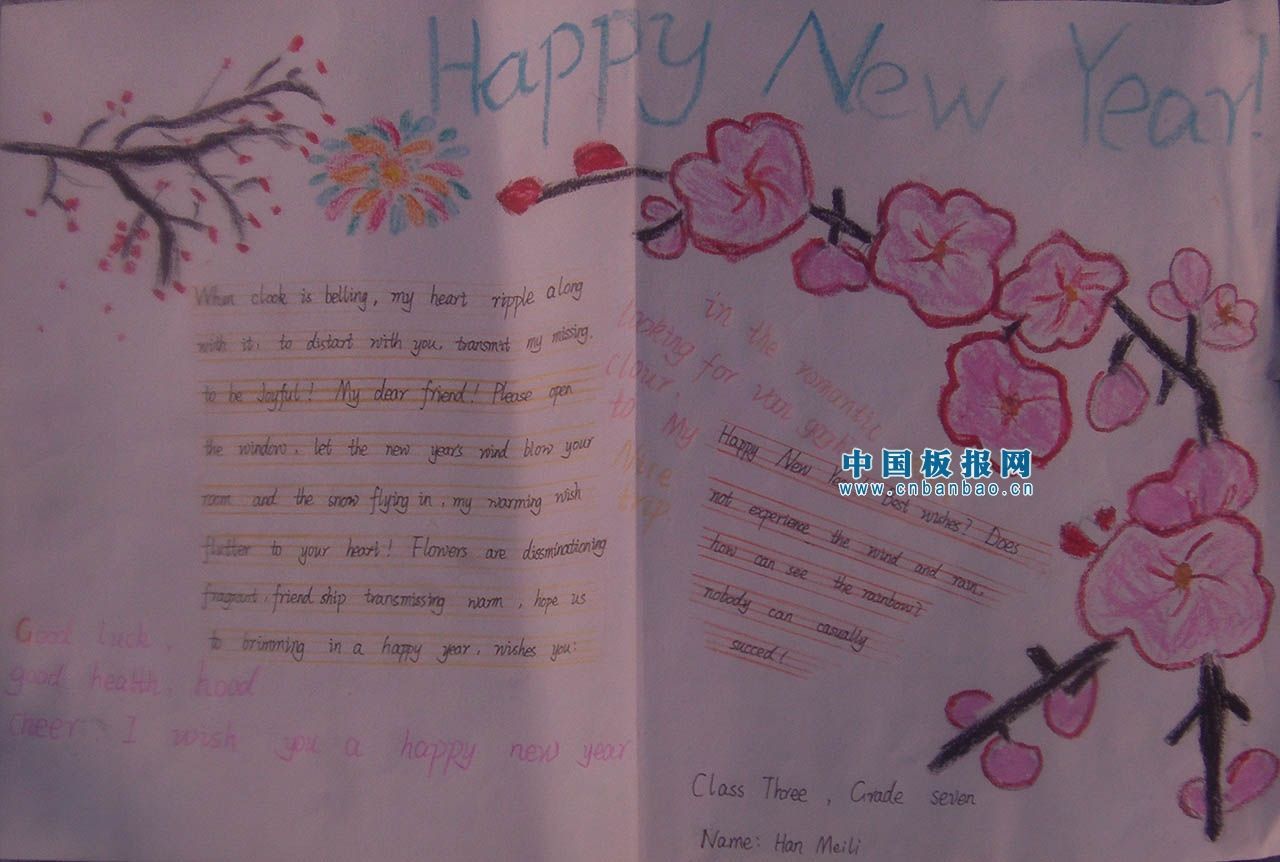 Happy New Year!
When clock is belling, my heart ripple along
with it, to distart with you, transmit my missing.
to be Joyful! My dear friend! Please open
the window, let the new year's wind blow your
room and the snow flying in, my warming wish
flutter to your heart! Flowers are dissminationg
fragrant, friend ship transmissing warm, hope us
to brimming in a happy year, wishes you:
Good luck,
good health, hood
cheer. I wish you a happy new year
in the romantic
looking for your
clour,
to My
Nice
trip
中国板报网
www.cnbanbao.cn
Happy New Best wishes? Does
not experience the wind and rain,
how can see the rainbow?
nobody can casually
succed!
Class Three, Grade seven
Name: Han Meili